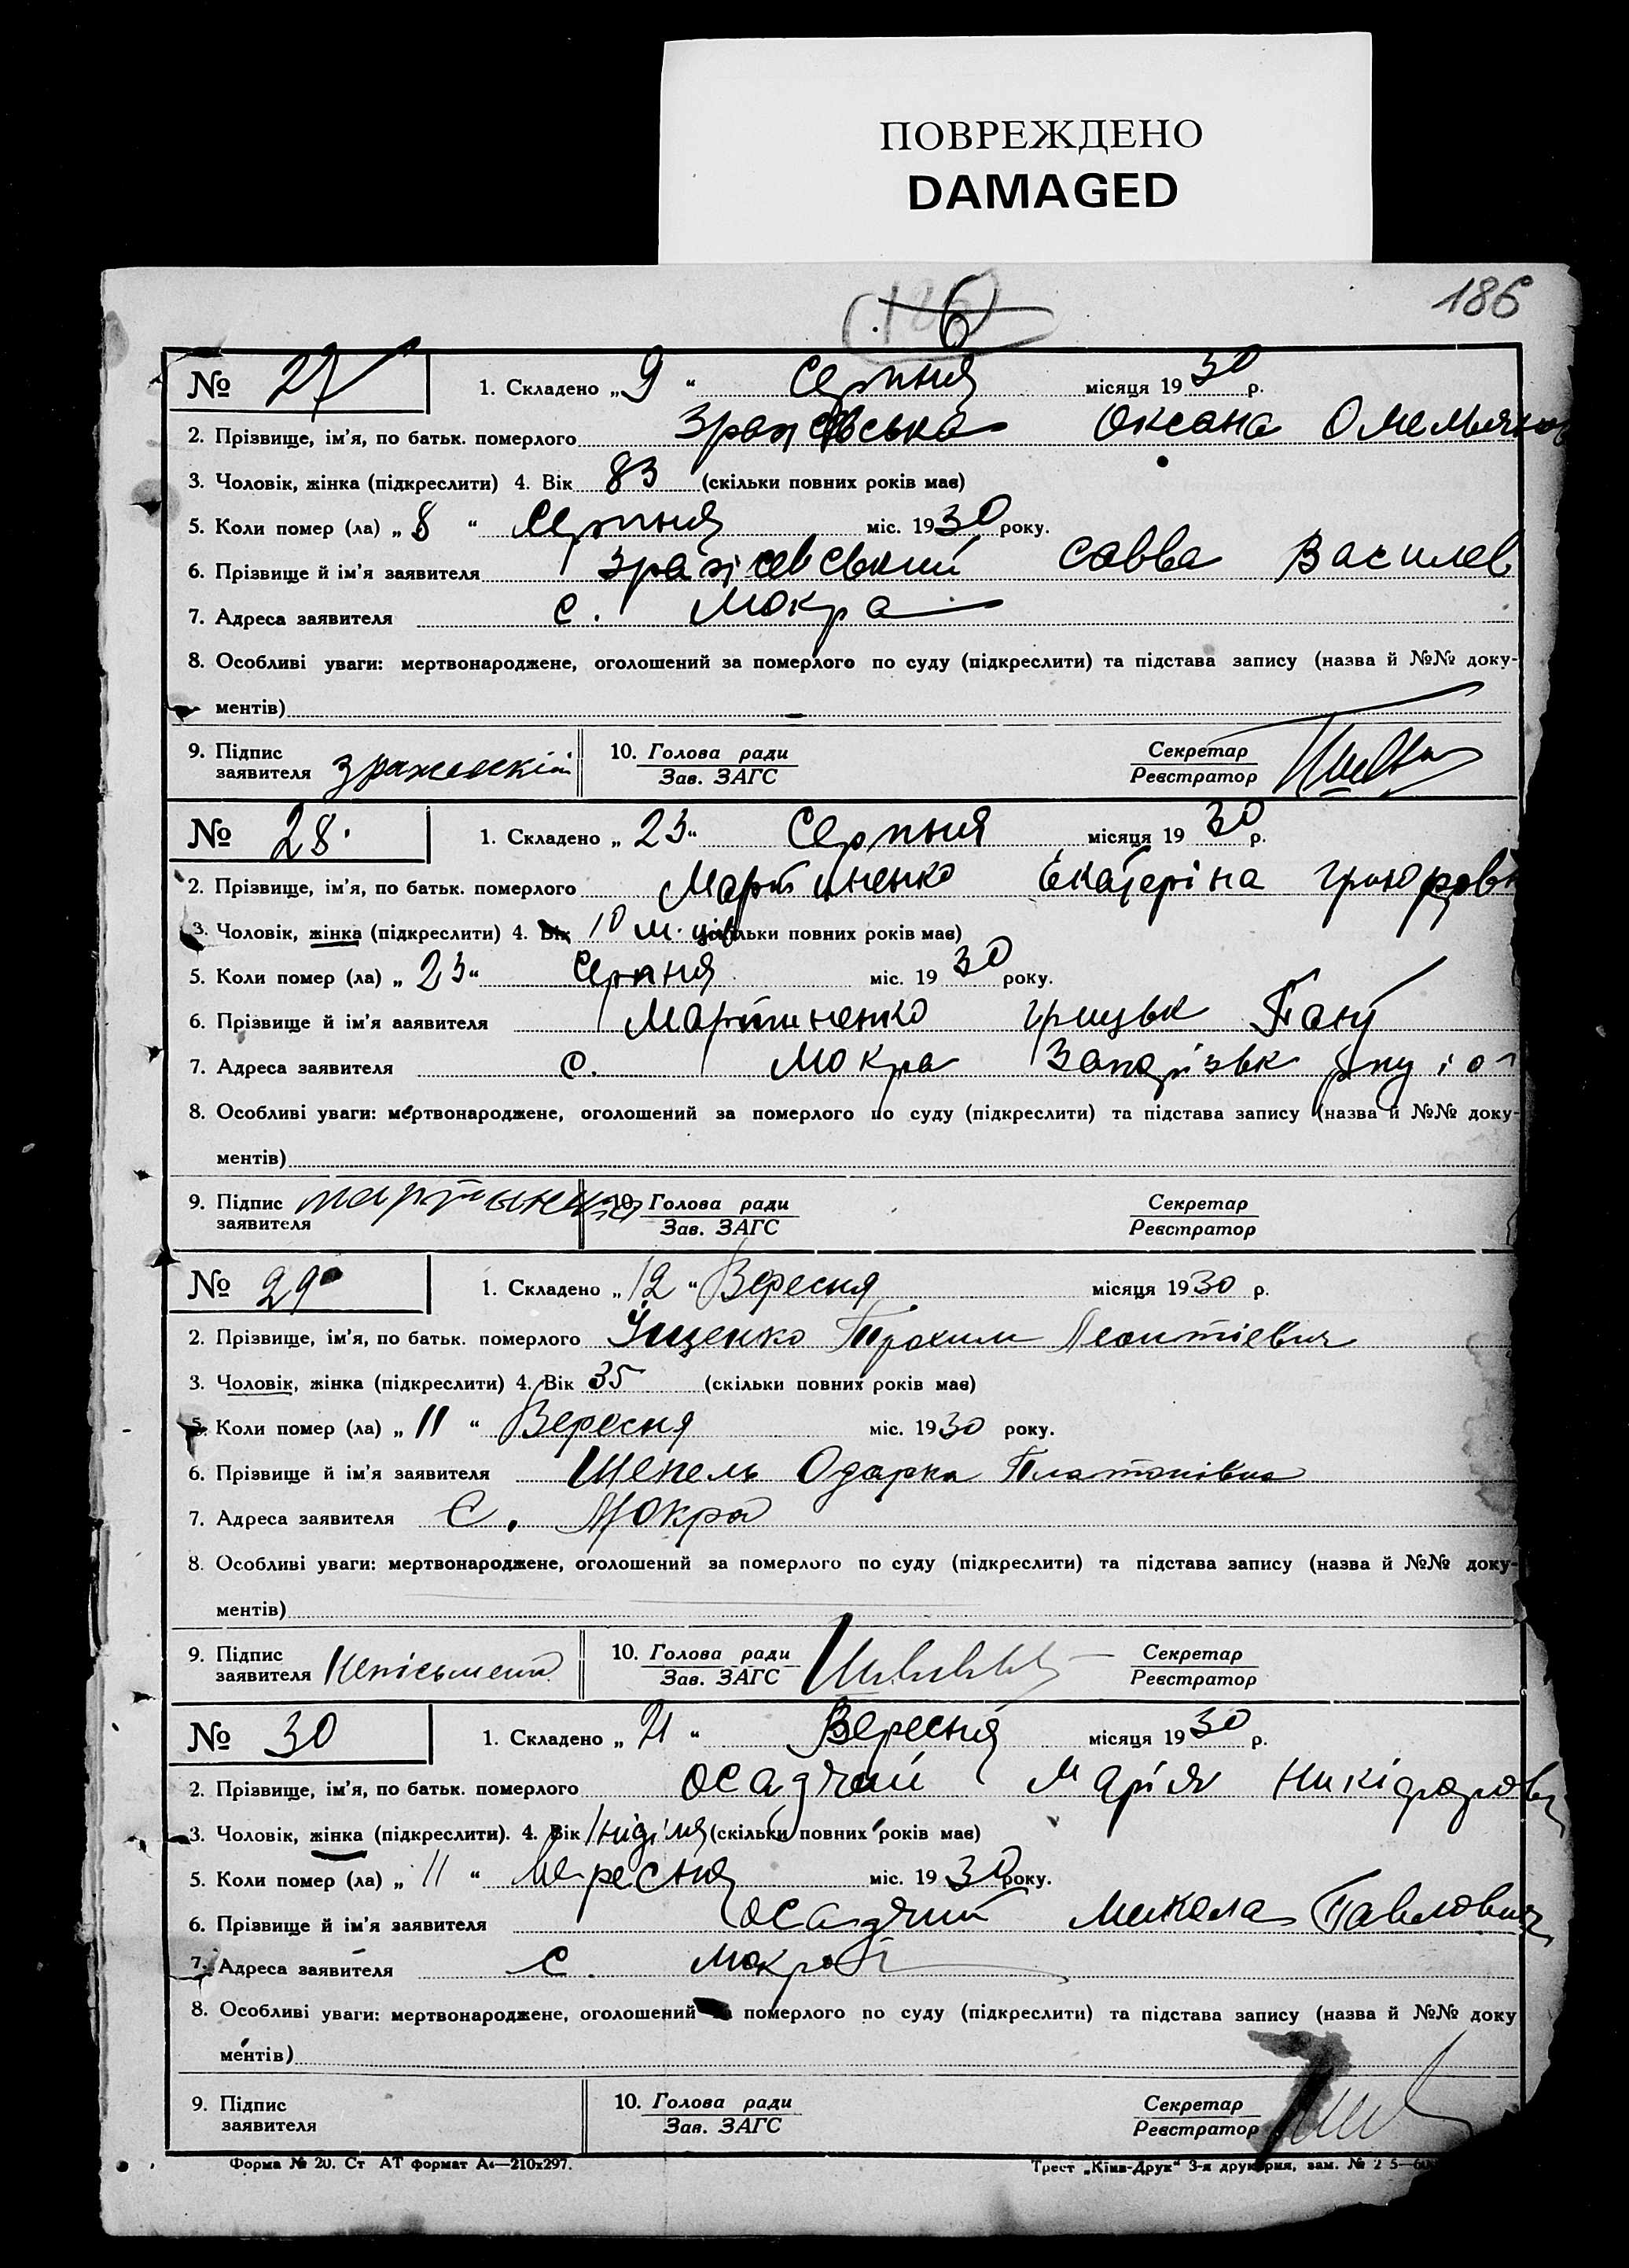 ПОВРЕЖДЕНО
DAMAGED
186
6
№ 27 1. Складено „ 9 “ Серпня місяця 19 30 р.
2. Прізвище, ім’я, по батьк. померлого Зражевська Оксана Омельянов
3. Чоловік, жінка (підкреслити) 4. Вік 83 (скільки повних років має)
5. Коли помер (ла) „ 8 “ Серпня міс. 19 30 року.
6. Прізвище й ім’я заявителя Зражевський Савва Василев
7. Адреса заявителя с. Мокра
8. Особливі уваги: мертвонароджене, оголошений за померлого по суду (підкреслити) та підстава запису (назва й №№ доку-
ментів)
9. Підпис заявителя Зражевский 10. Голова ради Зав. ЗАГС Секретар Реєстратор
№ 28 1. Складено „ 23 “ Серпня місяця 19 30 р.
2. Прізвище, ім’я, по батьк. померлого Мартиненко Екатеріна
3. Чоловік, жінка (підкреслити) 4. Вік 10 м-ців (скільки повних років має)
5. Коли помер (ла) „ 23 “ Серпня міс. 19 30 року.
6. Прізвище й ім’я заявителя Мартиненко Грицьк
7. Адреса заявителя с. Мокра
8. Особливі уваги: мертвонароджене, оголошений за померлого по суду (підкреслити) та підстава запису (назва й №№ доку-
ментів)
9. Підпис заявителя Мартыненко 10. Голова ради Зав. ЗАГС Секретар Реєстратор
№ 29 1. Складено „ 12 “ Вересня місяця 19 30 р.
2. Прізвище, ім’я, по батьк. померлого Іщенко Трохим Леонтіевич
3. Чоловік, жінка (підкреслити) 4. Вік 35 (скільки повних років має)
5. Коли помер (ла) „ 11 “ Вересня міс. 19 30 року.
6. Прізвище й ім’я заявителя Шепель Одарка Платонівна
7. Адреса заявителя С. Мокра
8. Особливі уваги: мертвонароджене, оголошений за померлого по суду (підкреслити) та підстава запису (назва й №№ доку-
ментів)
9. Підпис заявителя Неписьмена 10. Голова ради Зав. ЗАГС Секретар Реєстратор
№ 30 1. Складено „ 21 “ Вересня місяця 19 30 р.
2. Прізвище, ім’я, по батьк. померлого Осадчий Марія Никіфоровн
3. Чоловік, жінка (підкреслити). 4. Вік 1 нидiля (скільки повних років має)
5. Коли помер (ла) „ 11 “ Вересня міс. 19 30 року.
6. Прізвище й ім’я заявителя Осадчий Микола Павлович
7. Адреса заявителя с. Мокрой
8. Особливі уваги: мертвонароджене, оголошений померлого по суду (підкреслити) та підстава запису (назва й №№ доку
ментів)
9. Підпис заявителя 10. Голова ради Зав. ЗАГС Секретар Реєстратор
Форма № 20. Ст АТ формат А4—210x297. Трест „Київ-Друк“ 3-я друкарня, зам. №